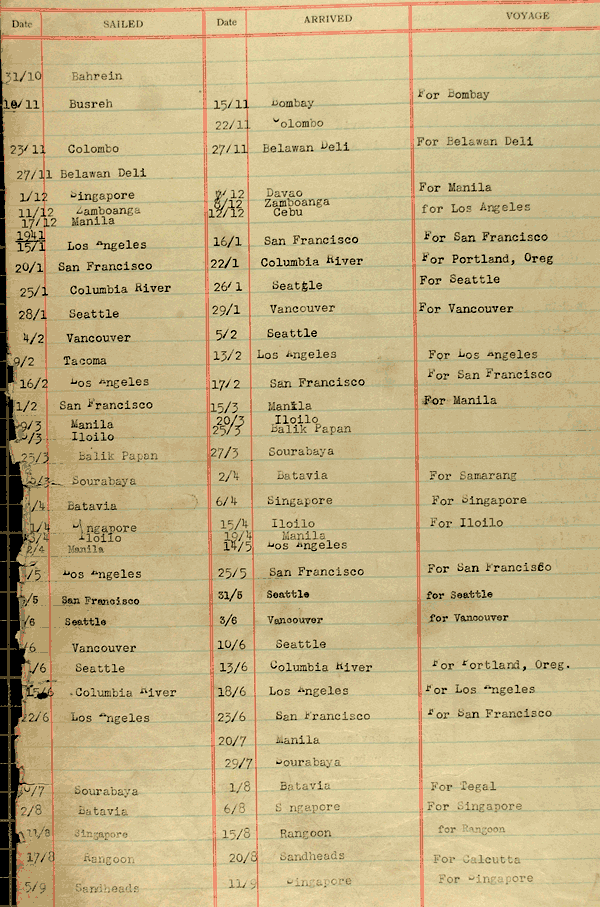 Date SAILED Date ARRIVED VOYAGE
31/10 Bahrein
10/11 Busreh 15/11 Bombay For Bombay
22/11 Colombo
23/11 Colombo 27/11 Belawan Deli For Belawan Deli
27/11 Belawan Deli
1/12 Singapore 7/12 Davao For Manila
11/12 Zamboanga 8/12 Zamboanga for Los Angeles
17/12 Manila 12/12 Cebu
1941
15/1 Los Angeles 16/1 San Francisco For San Francisco
20/1 San Francisco 22/1 Columbia River For Portland, Oreg
25/1 Columbia River 26/1 Seattle For Seattle
28/1 Seattle 29/1 Vancouver For Vancouver
4/2 Vancouver 5/2 Seattle
9/2 Tacoma 13/2 Los Angeles For Los Angeles
16/2 Los Angeles 17/2 San Francisco For San Francisco
1/2 San Francisco 15/3 Manila For Manila
9/3 Manila 20/3 Iloilo
/3 Iloilo 25/3 Balik Papan
25/3 Balik Papan 27/3 Sourabaya
/3 Sourabaya 2/4 Batavia For Samarang
/4 Batavia 6/4 Singapore For Singapore
1/4 Singapore 15/4 Iloilo For Iloilo
3/4 Iloilo 19/4 Manila
2/4 Manila 14/5 Los Angeles
/5 Los Angeles 25/5 San Francisco For San Francisco
/5 San Francisco 31/5 Seattle for Seattle
/6 Seattle 3/6 Vancouver for Vancouver
/6 Vancouver 10/6 Seattle
1/6 Seattle 13/6 Columbia River For Portland, Oreg.
15/6 Columbia River 18/6 Los Angeles For Los Angeles
22/6 Los Angeles 23/6 San Francisco For San Francisco
20/7 Manila
29/7 Sourabaya
/7 Sourabaya 1/8 Batavia For Tegal
2/8 Batavia 6/8 S ngapore For Singapore
11/8 Singapore 15/8 Rangoon for Rangoon
17/8 Rangoon 20/8 Sandheads For Calcutta
5/9 Sandheads 11/9 Singapore For Singapore